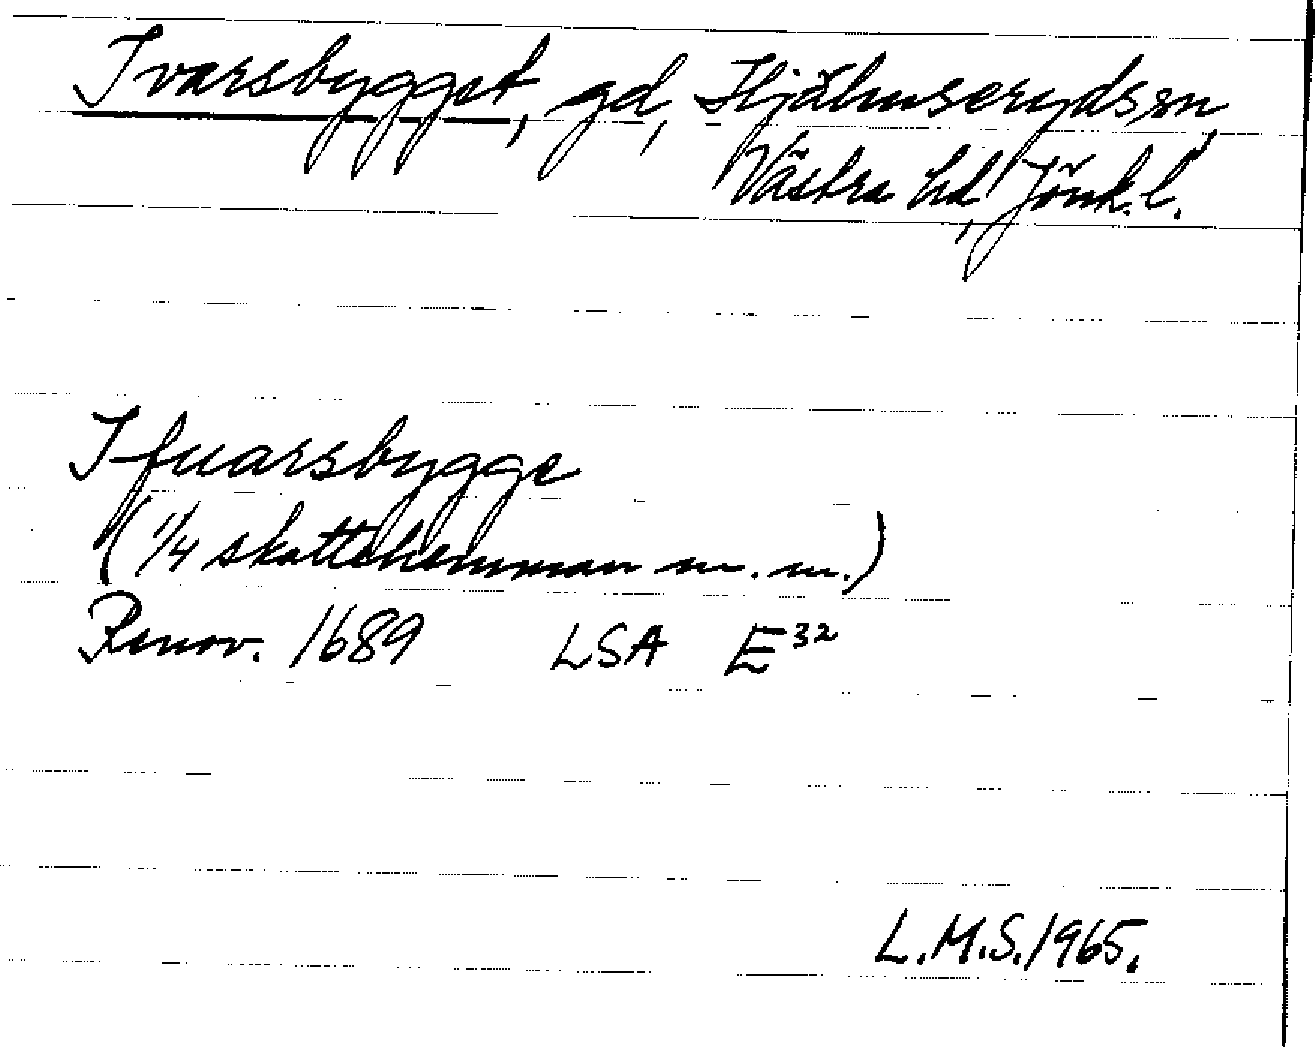 Ivarsbygget, gd, Hjälmseryds sn,
Västra hd, Jönk. l.
Ifuarsbygge
(1/4 skattehemman m. m.)
Renov. 1689 LSA E³²
L.M.S. 1965.